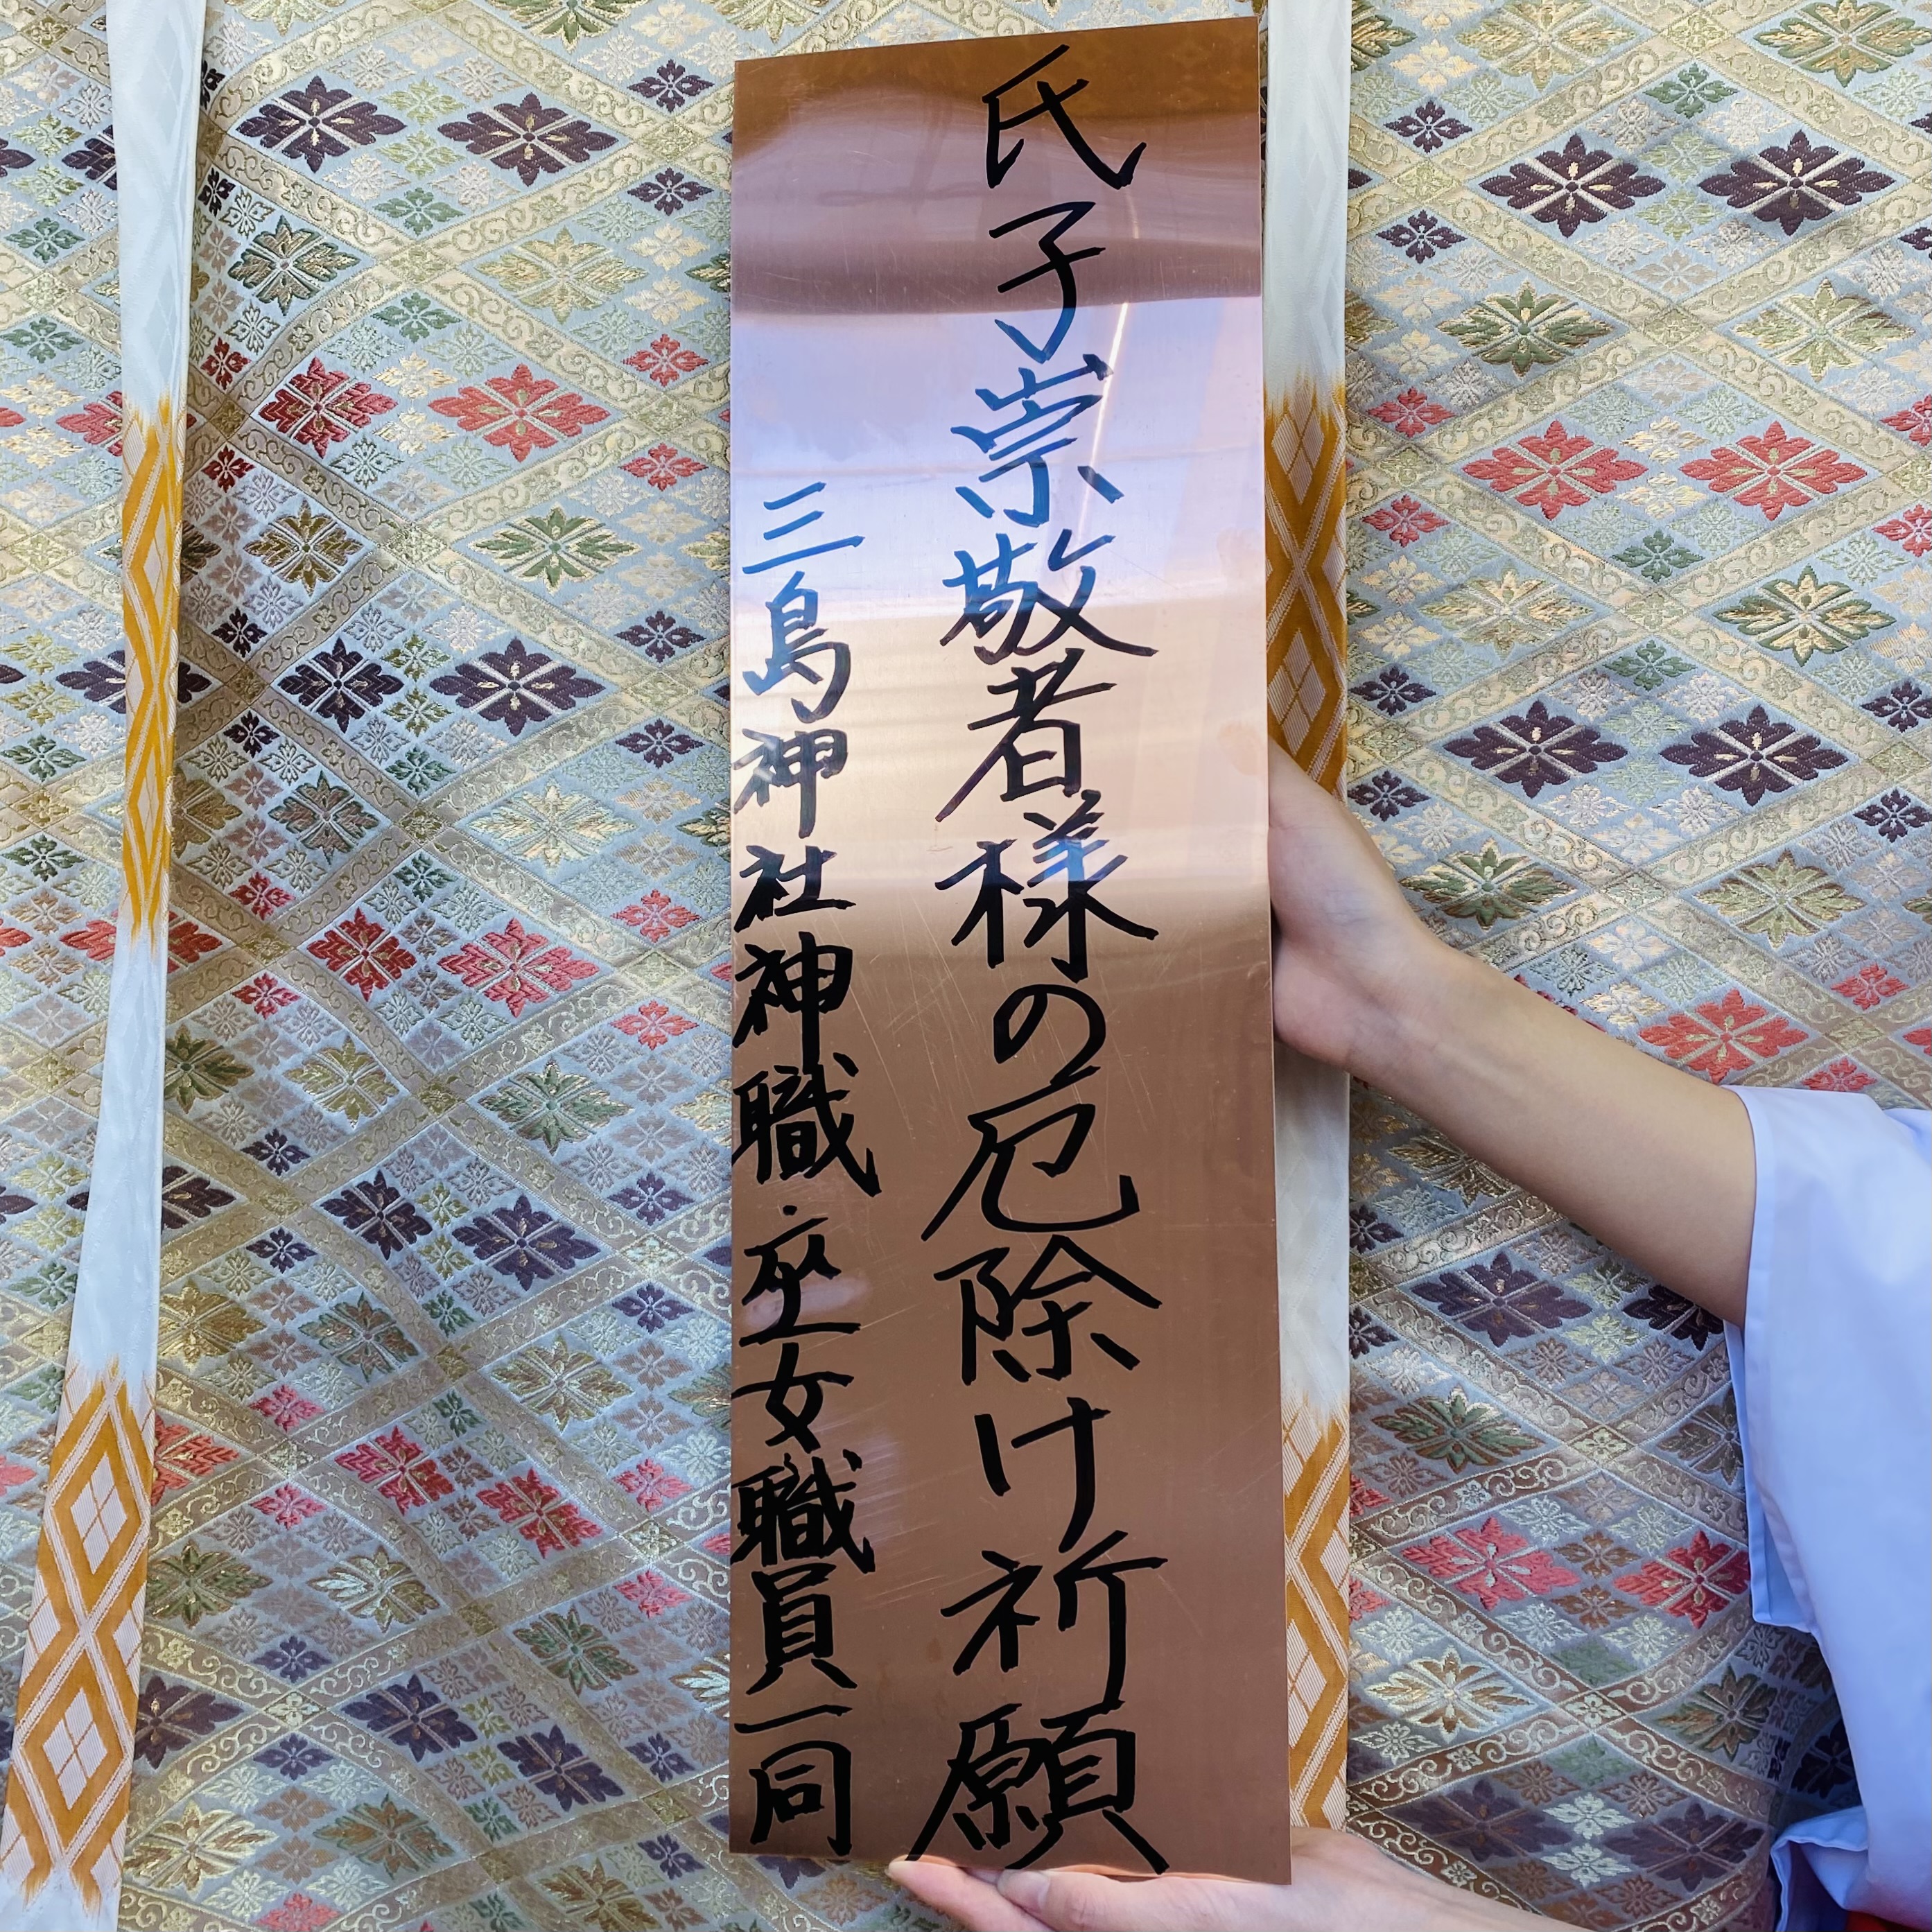 氏子崇敬者様の厄除け祈願
三島神社神職・巫女職員一同